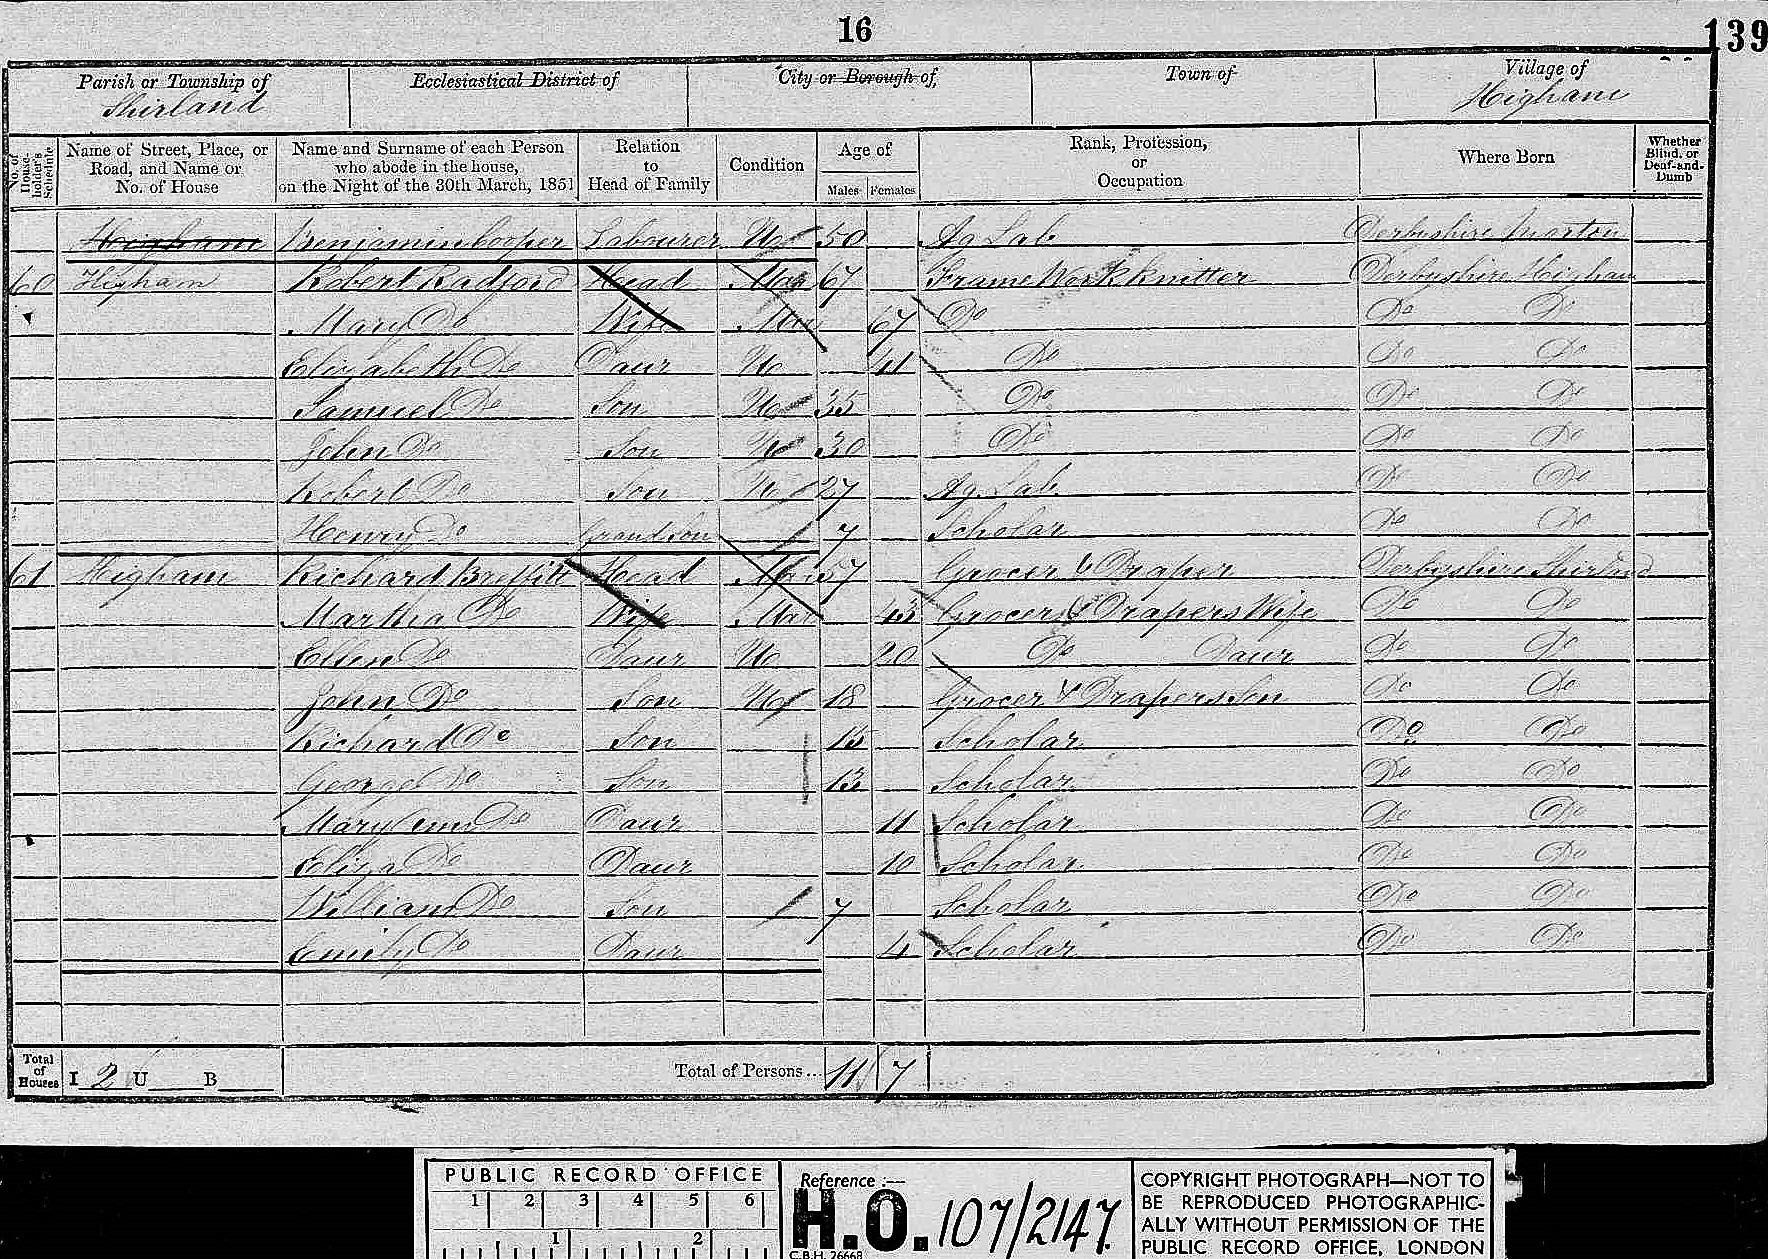 16
139
Parish or Township of Ecclesiastical District of City or Borough of, Town of Village of
Shirland Higham
No. of House-holder's Schedule
Name of Street, Place, or Road, and Name or No. of House
Name and Surname of each Person who abode in the house, on the Night of the 30th March, 1851
Relation to Head of Family
Condition
Age of
Males Females
Rank, Profession, or Occupation
Where Born
Whether Blind, or Deaf-and-Dumb
Higham Benjamin Cooper Labourer U 50 Ag Lab Derbyshire Morton
60 Higham Robert Radford Head Mar 67 Frame Work Knitter Derbyshire Higham
Mary Do Wife Mar 67 Do Do Do
Elizabeth Do Daur U 41 Do Do Do
Samuel Do Son U 35 Do Do Do
John Do Son U 30 Do Do Do
Robert Do Son U 27 Ag. Lab. Do Do
Henry Do Grandson 7 Scholar Do Do
61 Higham Richard Breffitt Head Mar 57 Grocer & Draper Derbyshire Shirland
Martha Do Wife Mar 43 Grocers & Drapers Wife Do Do
Ellen Do Daur U 20 Do Daur Do Do
John Do Son U 18 Grocer & Drapers Son Do Do
Richard Do Son 15 Scholar Do Do
George Do Son 13 Scholar Do Do
Mary Ann Do Daur 11 Scholar Do Do
Eliza Do Daur 10 Scholar Do Do
William Do Son 7 Scholar Do Do
Emily Do Daur 4 Scholar Do Do
Total of Houses I 2 U B Total of Persons... 11 7
PUBLIC RECORD OFFICE
1 2 3 4 5 6
1 2
Reference :—
H.O. 107/2147
C.B.H. 26668
COPYRIGHT PHOTOGRAPH—NOT TO
BE REPRODUCED PHOTOGRAPHIC-
ALLY WITHOUT PERMISSION OF THE
PUBLIC RECORD OFFICE, LONDON